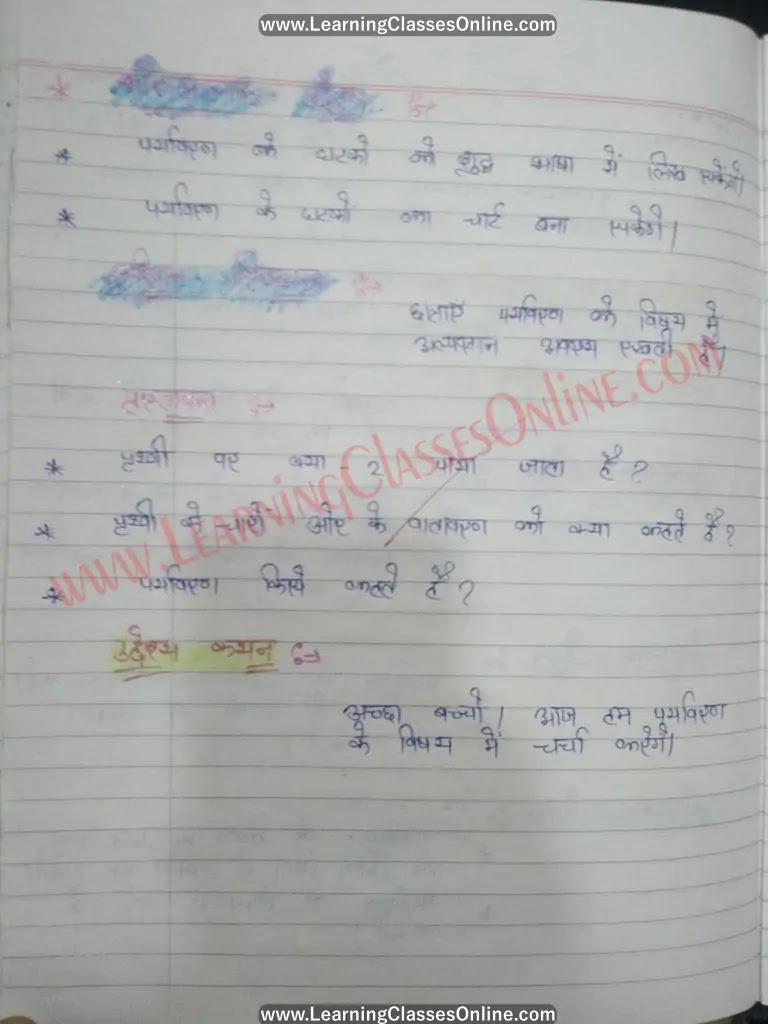 www.LearningClassesOnline.com
* पर्यावरण के घटको को शुद्ध भाषा में लिख सकेंगे।
* पर्यावरण के घटको का चार्ट बना सकेगे।
छात्राएं पर्यावरण के विषय मे
अल्पज्ञान अवश्य रखती है।
प्रस्तावना :→
* पृथ्वी पर क्या - 2 पाया जाता है?
* पृथ्वी के चारों ओर के वातावरण को क्या कहते है?
* पर्यावरण किसे कहते है?
www.LearningClassesOnline.com
उद्देश्य कथन :→
अच्छा बच्चो। आज हम पर्यावरण
के विषय में चर्चा करेगे।
www.LearningClassesOnline.com